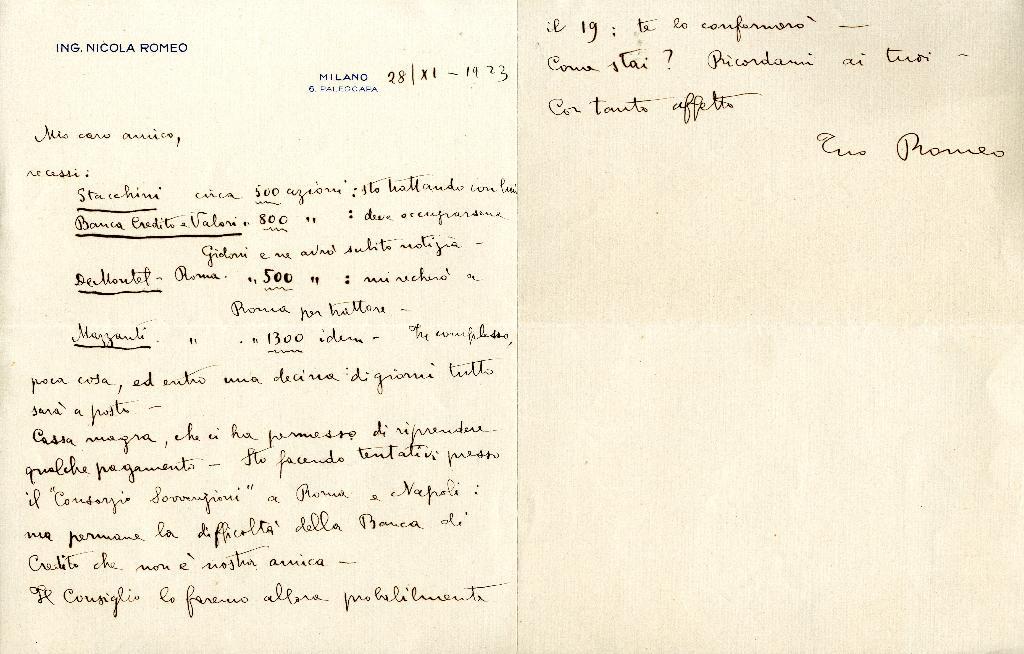 ING. NICOLA ROMEO
MILANO 28/XI - 1923
6. PALEOCAPA
Mio caro amico,
recessi:
Stacchini circa 500 azioni: sto trattando con lui
Banca Credito e Valori " 800 " : deve occuparsene
Gidoni e ne avrò subito notizia -
De Montel - Roma. " 500 " : mi recherò a
Roma per trattare -
Mazzanti. " . " 1300 idem - In complesso,
poca cosa, ed entro una decina di giorni tutto
sarà a posto -
Cassa magra, che ci ha permesso di riprendere
qualche pagamento - Sto facendo tentativi presso
il "Consorzio Sovvenzioni" a Roma e Napoli:
ma permane la difficoltà della Banca di
Credito che non è nostra amica -
Il Consiglio lo faremo allora probabilmente
il 19: te lo confermerò -
Come stai? Ricordami ai tuoi -
Con tanto affetto
Tuo Romeo